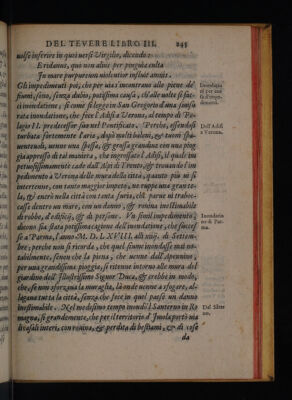 DEL TEVERE LIBRO III. 245
volse inferire in quoi versi Virgilio, dicendo:
Eridanus, quo non alius per pinguia culta
In mare purpureum violentior influit amnis.
Gli impedimenti poi, che per via incontrano alle piene de'
fiumi, sono, senza dubio, potissima causa, ch'alle volte si fac-
ci inondatione; si come si legge in San Gregorio d'una smisu
rata inondatione, che fece l'Adice à Verona, al tempo di Pe-
lagio II. predecessor suo nel Ponteficato. Perche, essendosi
turbata fortemente l'aria, dopò molti baleni, & tuoni spa-
uenteuoli, uenne una spessa, & grossa grandine con una piog
gia appresso di tal maniera, che ingrossato l'Adice, il quale im
petuosissimamente cade dall'Alpi di Trento, & trouando l'im
pedimento à Verona delle mura della città, quanto più ui si
intertenne, con tanto maggior impeto, ne ruppe una gran to-
la, & entrò nella città con tanta furia, ch'l parue ui traboc-
casse dentro un mare, con un danno, & rouina inestimabile
di robbe, d'edificij, & di persone. Un simil impedimento,
dicono sia stata potissima cagione dell'inondatione, che succes
se à Parma, l'anno M. D. LXVIII. alli uiij. di Settem-
bre; perche non si ricorda, che quel fiume inondasse mai no-
tabilmente, senon che la piena, che uenne dall'Apennino,
per una grandissima pioggia, si ritenne intorno alle mura del
giardino dell'Illustrissimo Signor Duca, & crebbe in modo,
che, se non sforzaua la muraglia, là onde uenne a sfogare, al-
lagaua tutta la città, senza che fece in quel paese un danno
inestimabile. Nel medesimo tempo inondò'l Santerno in Ro
magna, sì grandemente, che per il territorio d'Imola portò uia
i casali interi, con rouina, & perdita di bestiami, & di cose
da
Inondatio
ni per cau
sa d'impe-
dimenti.
Dell'Adice
a Verona.
Inondatio
ne di Par-
ma.
Del Sāter
no.